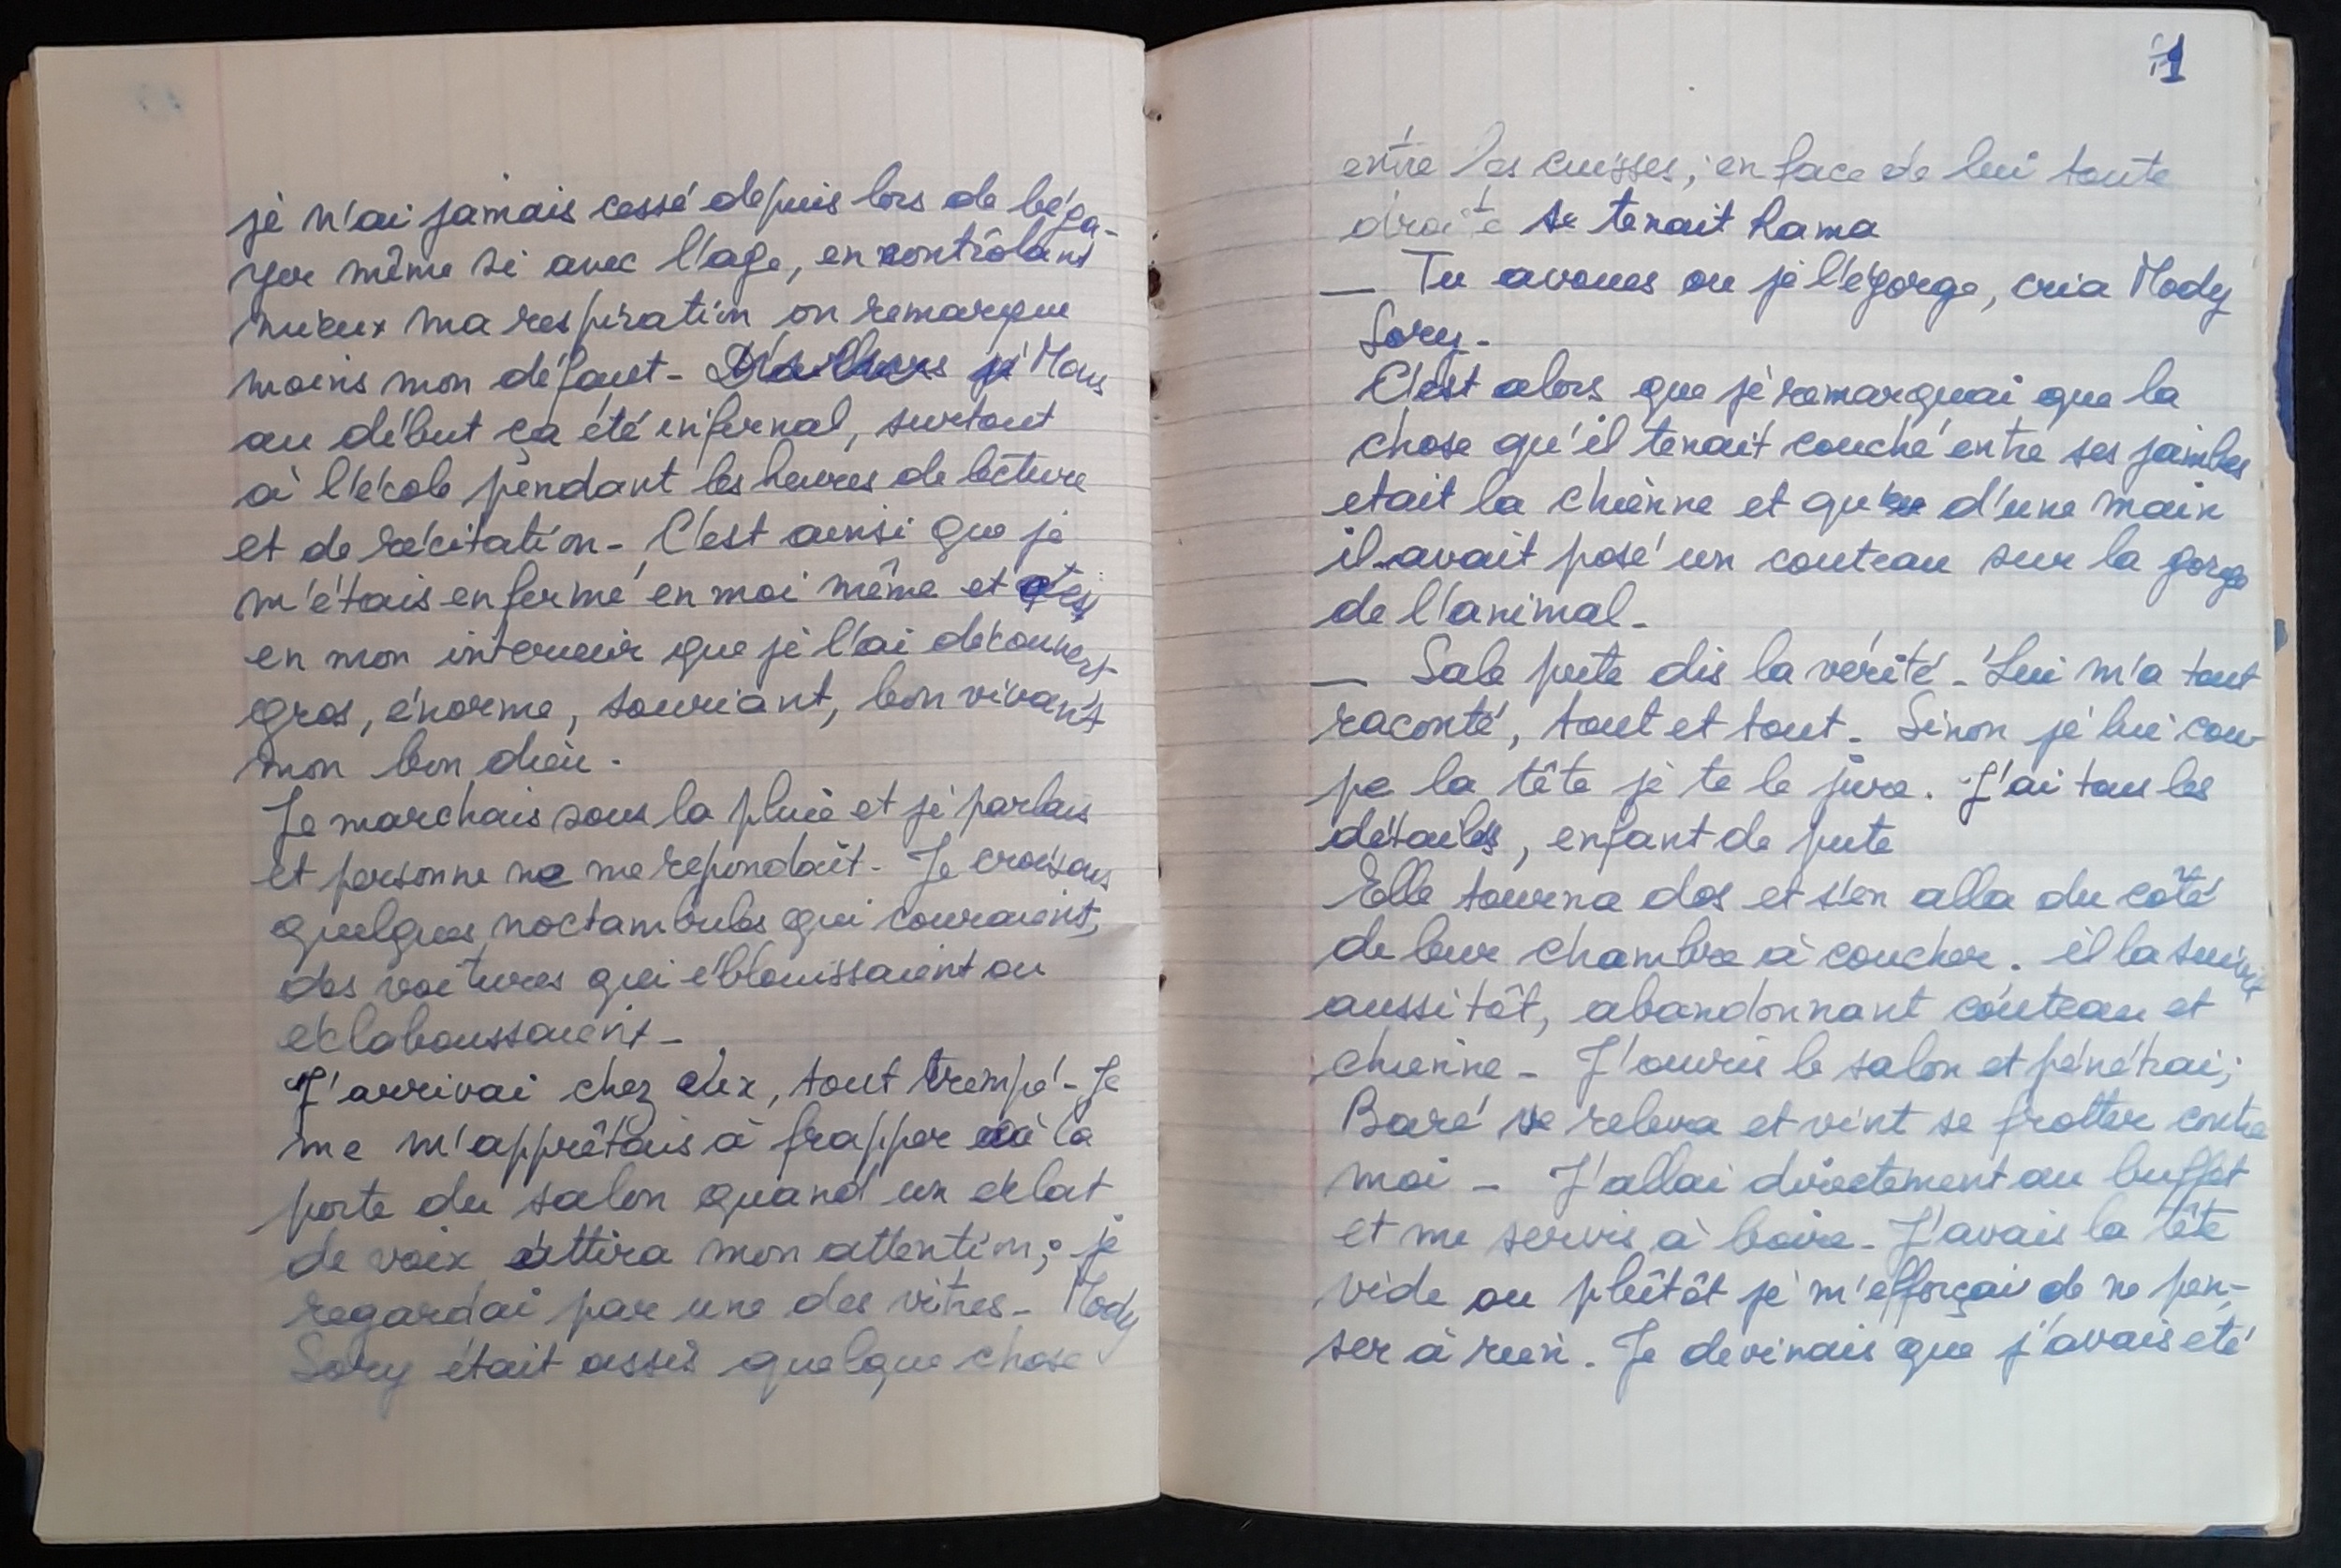 je n'ai jamais cessé depuis lors de béga-
yer même si avec l'age, en contrôlant
mieux ma respiration on remarque
moins mon défaut - D'ailleurs je Mais
au début ça été infernal, surtout
à l'école pendant les heures de lecture
et de récitation - C'est ainsi que je
m'étais enfermé en moi même et c'est
en mon interieur que je l'ai découvert
gros, énorme, souriant, bon vivant
mon bon dieu.
Je marchais sous la pluie et je parlais
et personne ne me repondait - Je croisais
quelques noctambules qui couraient,
des voitures qui éblouissaient ou
éclaboussaient -
J'arrivai chez eux, tout trempé - Je
me m'apprêtais à frapper à la
porte du salon quand un éclat
de voix attira mon attention; je
regardai par une des vitres - Mody
Sory était assis quelque chose
71
entre les cuisses; en face de lui toute
droite se tenait Rama
— Tu avoues ou je l'égorge, cria Mody
Sory -
C'est alors que je remarquai que la
chose qu'il tenait couché entre ses jambes
etait la chienne et que d'une main
il avait posé un couteau sur la gorge
de l'animal -
— Sale pute dis la vérité - Lui m'a tout
raconté, tout et tout - Sinon je lui cou-
pe la tête je te le jure. J'ai tous les
détails, enfant de pute
Elle tourna dos et s'en alla du côté
de leur chambre à coucher. il la suivit
aussitôt, abandonnant couteau et
chienne - J'ouvris le salon et pénétrai;
Baré se releva et vint se frotter contre
moi - J'allai directement au buffet
et me servis à boire - J'avais la tête
vide ou plûtôt je m'efforçai de ne pen-
ser à rien. Je devinais que j'avais été